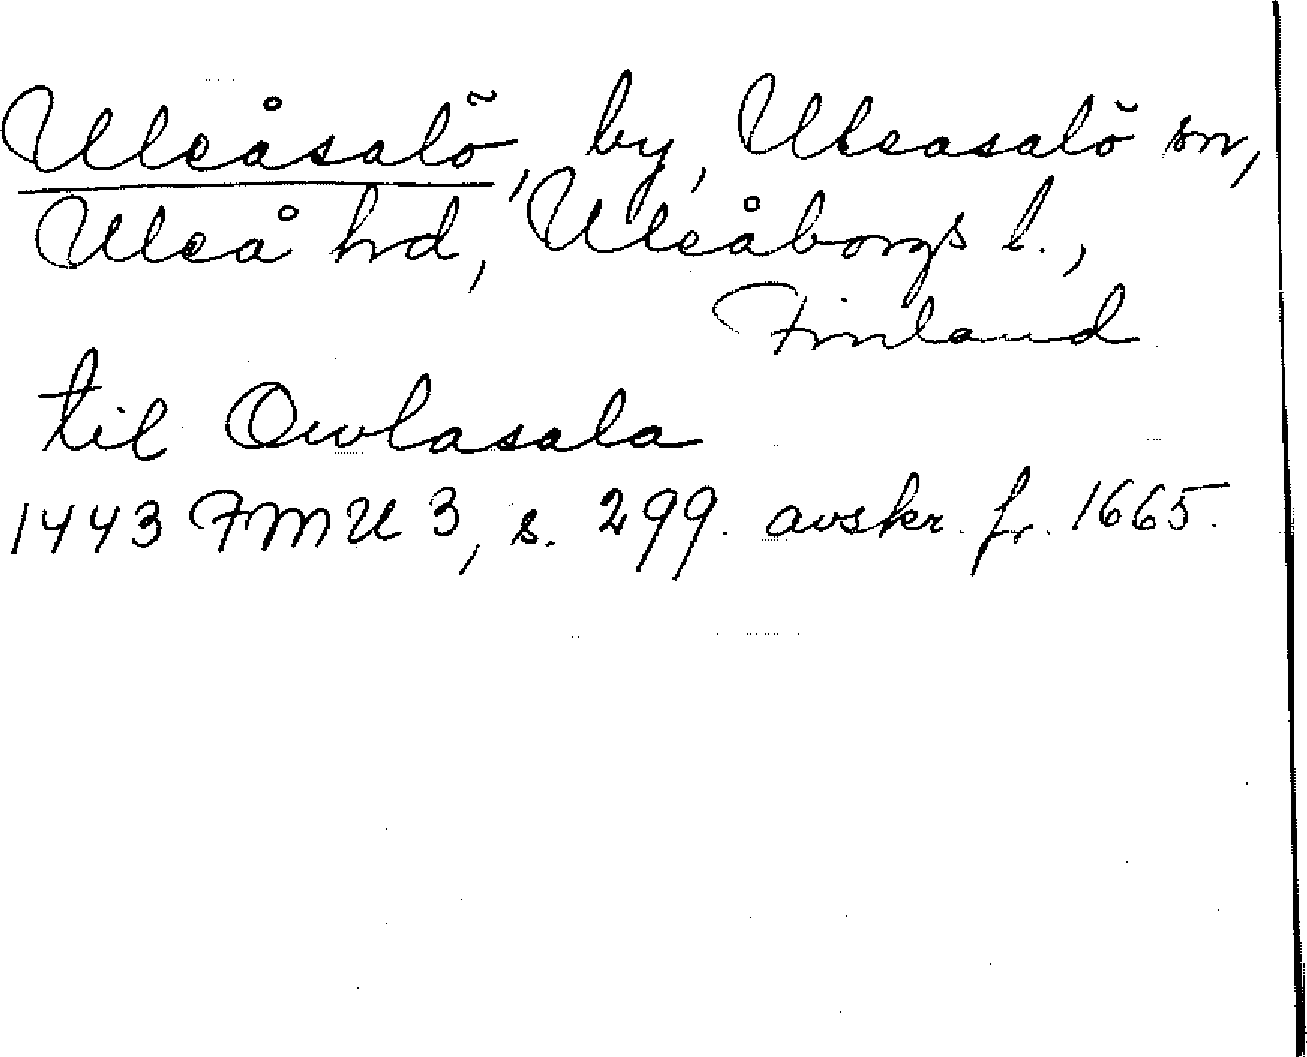 Uleåsalö, by, Uleasalö sn,
Uleå hd, Uleåborgs l.,
Finland
til Owlasala
1443 FMU 3, s. 299. avskr. fr. 1665.